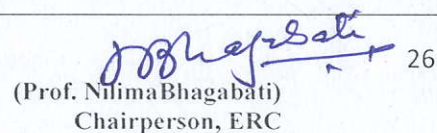 NBhagabati
26
(Prof. NilimaBhagabati)
Chairperson, ERC